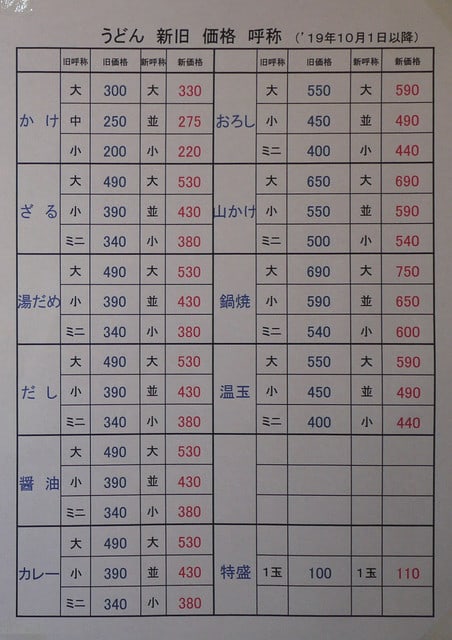 うどん 新旧 価格 呼称 ('19年10月1日以降)
旧呼称 旧価格 新呼称 新価格 旧呼称 旧価格 新呼称 新価格
かけ 大 300 大 330 おろし 大 550 大 590
中 250 並 275 小 450 並 490
小 200 小 220 ミニ 400 小 440
ざる 大 490 大 530 山かけ 大 650 大 690
小 390 並 430 小 550 並 590
ミニ 340 小 380 ミニ 500 小 540
湯だめ 大 490 大 530 鍋焼 大 690 大 750
小 390 並 430 小 590 並 650
ミニ 340 小 380 ミニ 540 小 600
だし 大 490 大 530 温玉 大 550 大 590
小 390 並 430 小 450 並 490
ミニ 340 小 380 ミニ 400 小 440
醤油 大 490 大 530
小 390 並 430
ミニ 340 小 380
カレー 大 490 大 530
小 390 並 430 特盛 1玉 100 1玉 110
ミニ 340 小 380